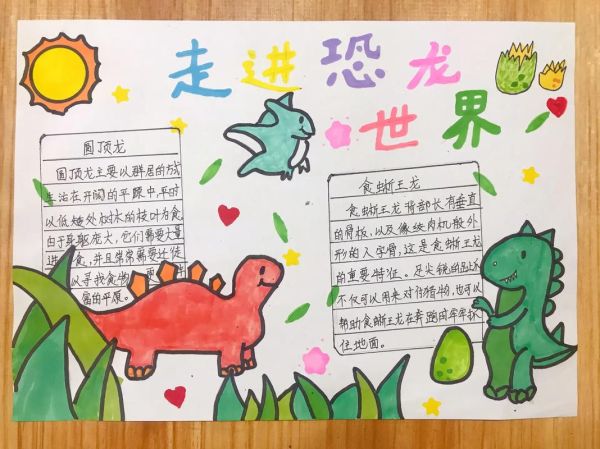 走进恐龙
世界
圆顶龙
圆顶龙主要以群居的方式
生活在开阔的平原中,平时
以低矮处树木的枝叶为食
由于身躯庞大,它们需要大量
进食,并且常常需要迁徙
以寻找食物
的平原。
食蜥王龙
食蜥王龙背部长有垂直
的骨板,以及像绞肉机般外
形的人字骨,这是食蜥王龙
的重要特征。足尖锐的
不仅可以用来对付猎物,也可以
帮助食蜥王龙在奔跑时牢牢抓
住地面。